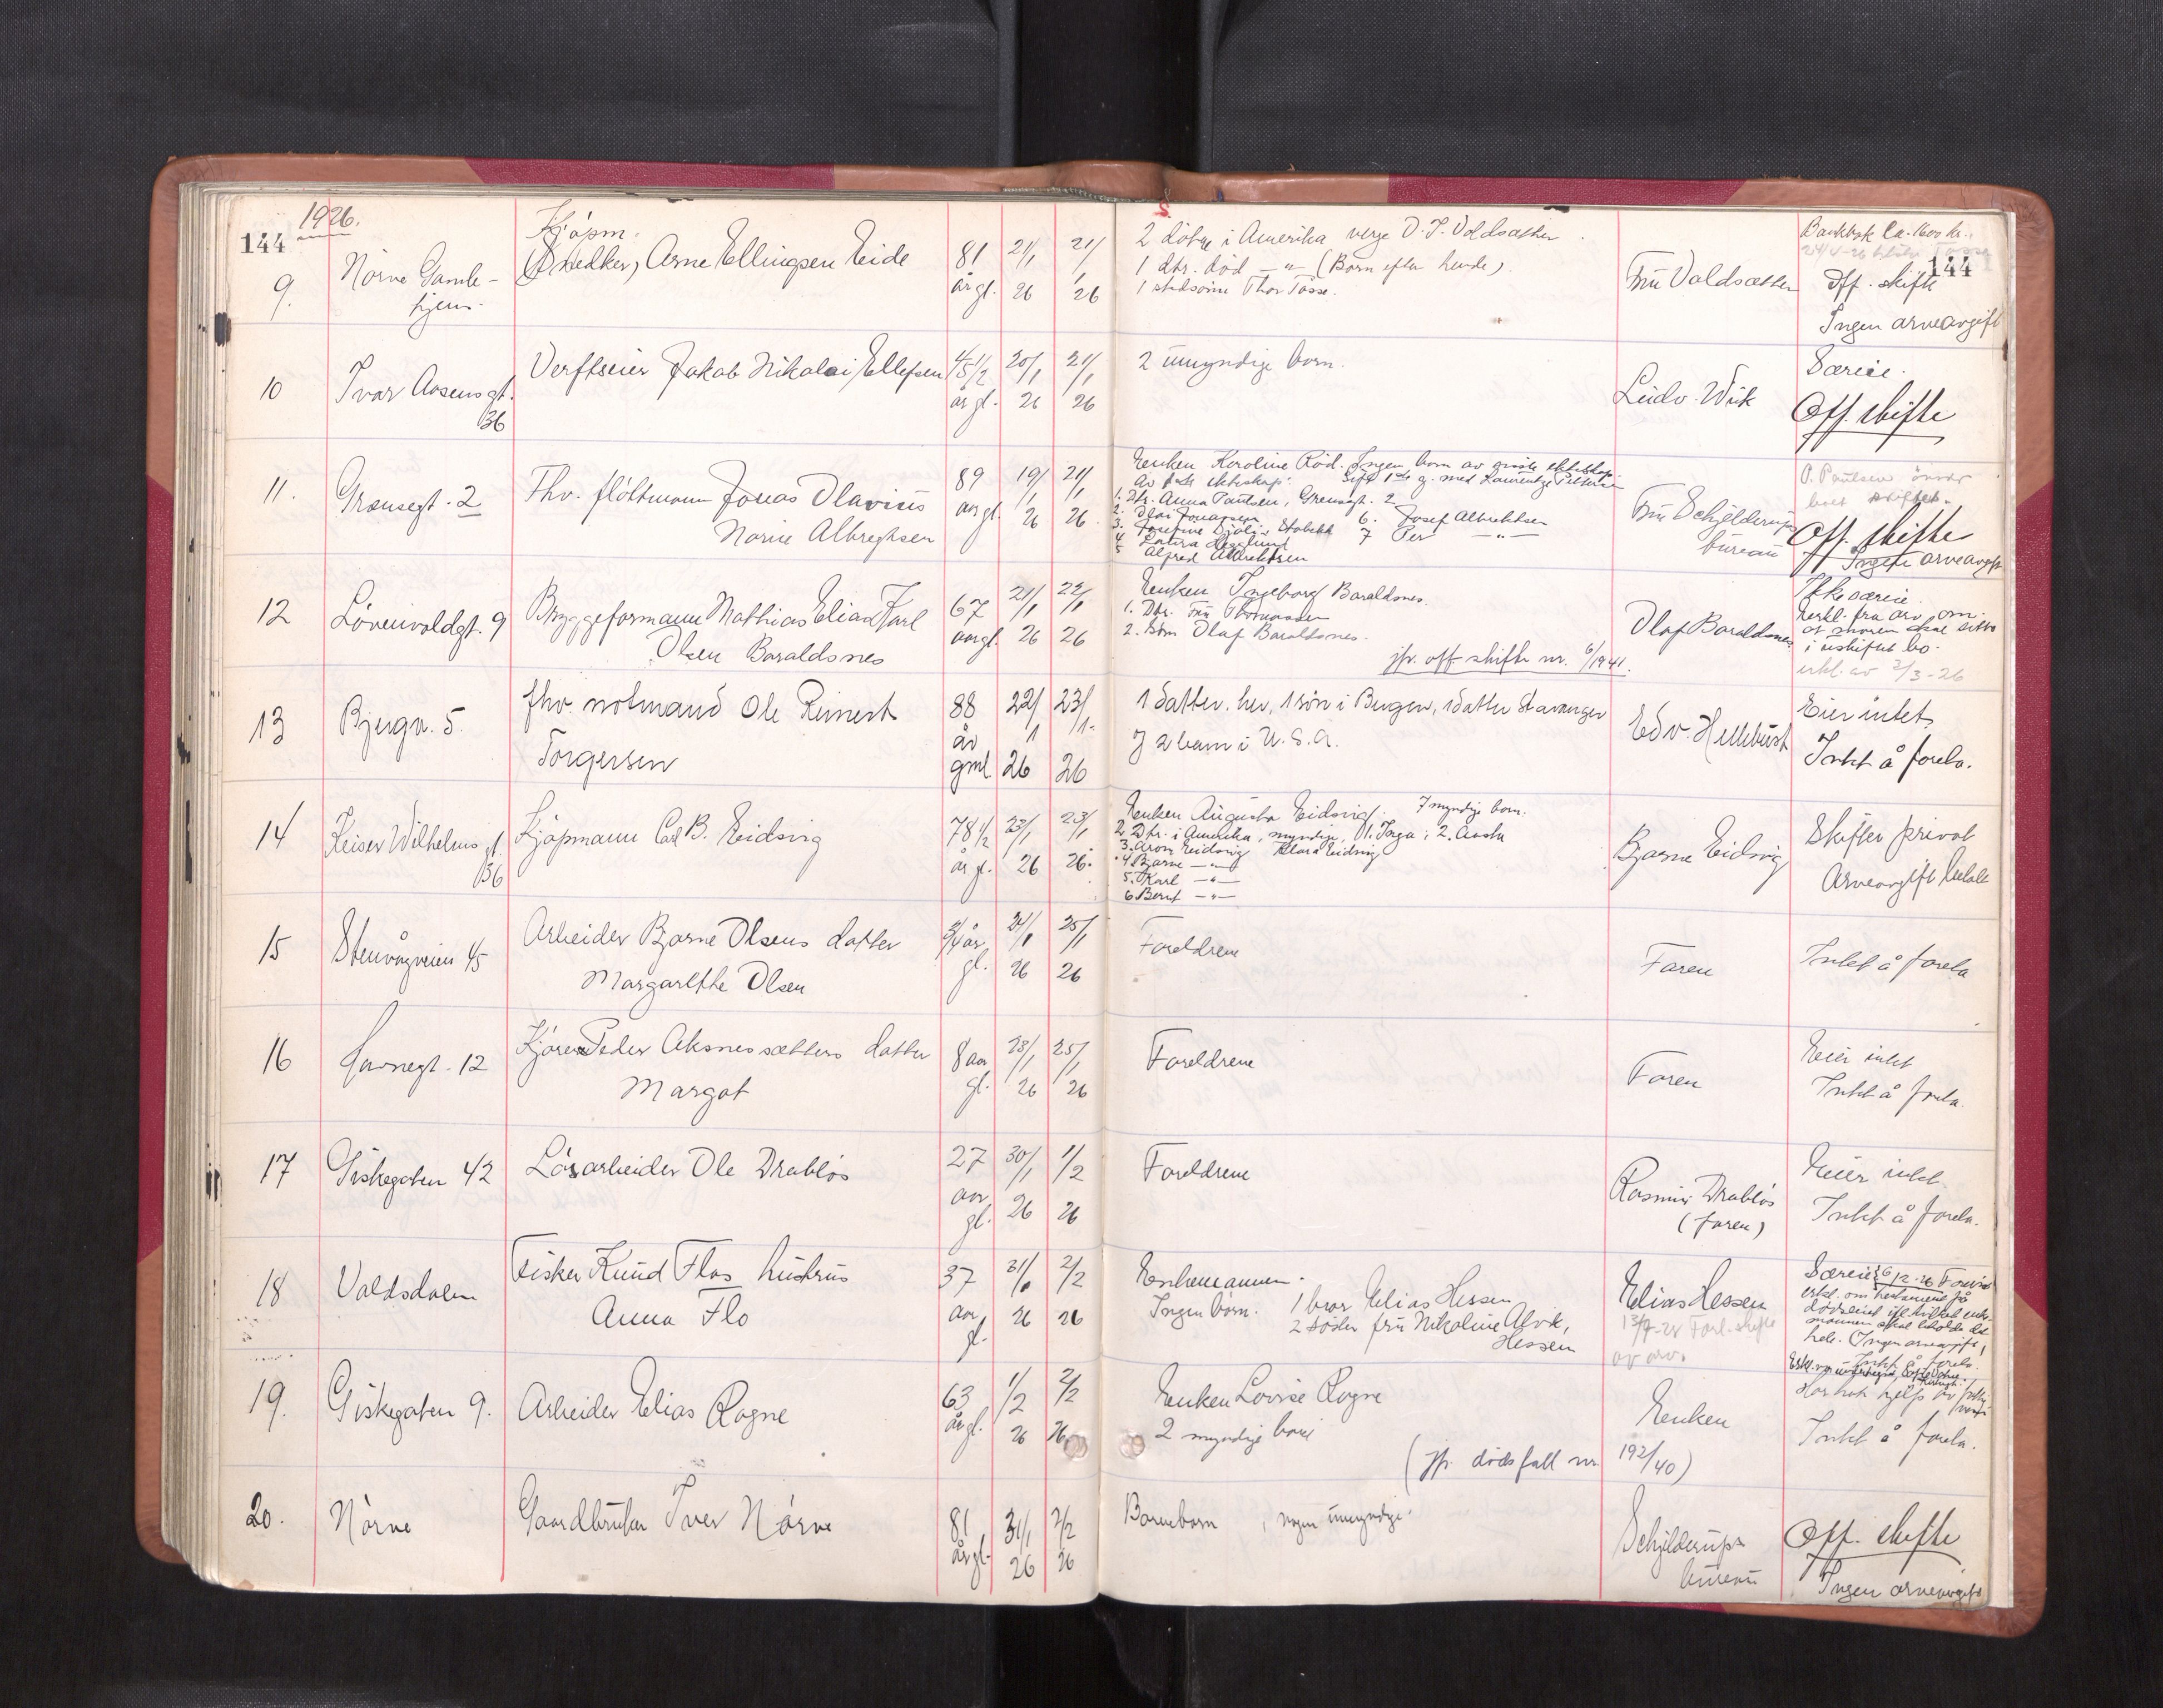 1926.
144
9.
Nörve Gamle-
hjem.
Kjöpm.
Snedker, Arne Ellingsen Eide
81
år gl.
21/1
26
21/1
26
2 døtre i Amerika verge O. J. Voldsæther
1 dtr. död —"— (Børn efter hende).
1 stedsönn Thor Tosse.
Fru Voldsæther
Bankbok ca. 1600 kr.
144
Off. skifte
Ingen arveavgift
10
Ivar Aasens gt.
36
Verftseier Jakob Nikolai Ellefsen
45 1/2
år gl.
20/1
26
21/1
26
2 umyndige born.
Ludv. Wiik
Særeie.
Off. skifte
11.
Grensegt. 2
Fhv. fløttmann Jonas Olavius
Norvie Albregtsen
89
aar gl.
19/1
26
21/1
26.
Enken Karoline Röd. Ingen born av siste ekteskap.
Av 1ste ekteskap: Gift 1ste g. med
1. Dtr. Anna Paulsen, Grensegt. 2
2. Olai Jonassen
3. Josefine Stabekk
4 Laura
5 Alfred Albrektsen
6. Josef Albrektsen
7 Per —"—
Fru Schjelderups
bureau
O. Paulsen önsker
boet skiftet.
Off. skifte
Ingen arveavgift
12
Lövenvoldgt. 9
Bryggeformann Mathias Elias Karl
Olsen Baraldsnes
67
aar gl.
21/1
26
22/1
26
Enken Ingeborg Baraldsnes.
1. Dtr. Fru Thomassen
2. Sönn Olaf Baraldsnes.
jfr. off. skifte nr. 6/1941.
Olaf Baraldsnes
Ikke særeie.
Erkl. fra arv. om
at moren skal sitte
i uskiftet bo.
erkl. av 2/3-26
13
Bjergn. 5.
fhv. notmand Ole Reinert
Torgersen
88
år
gml
22/1
26
23/1.
26
1 datter her, 1 sön i Bergen, 1 datter Stavanger
og 2 barn i U.S.A.
Edv. Hellebust
Eier intet
Intet å foreta.
14
Keiser Wilhelms gt.
36
Kjöpmann Carl B. Eidsvig
78 1/2
år gl.
23/1
26
23/1
26.
Enken Augusta Eidsvig. 7 myndige born.
2 Dtr. i Amerika, myndige, 1. Inga; 2. Aasta
3. Aron Eidsvig Klara Eidsvig
4 Bjarne —"—
5. Karl —"—
6 Bernt —"—
Bjarne Eidsvig
Skifter privat
Arveavgift betalt
15
Stenvågveien 45
Arbeider Bjarne Olsens datter
Margarethe Olsen
3/4 år
gl.
24/1
26
25/1
26
Foreldrene
Faren
Intet å foreta
16
Havnegt. 12
Kjörer Peder Aksnessætters datter
Margot
8 aar
gl.
23/1
26
25/1
26
Foreldrene
Faren
Eier intet
Intet å foreta.
17
Giskegaten 42
Lösarbeider Ole Drablös
27
aar
gl.
30/1
26
1/2
26
Foreldrene
Rasmus Drablös
(faren)
Eier intet
Intet å foreta.
18
Valdsdalen
Fisker Knud Flos hustru
Anna Flo
37
aar
gl.
31/1
26
2/2
26
Enkemannen.
Ingen börn. 1 bror Elias Hessen
2 söster fru Nikoline Alvik,
Hessen
Elias Hessen
av arv.
Særeie 6/2-26
erkl. om testamente på
dödsleiet ifl. hvilket enke-
mannen skal beholde det
hele. Ingen arveavgift,
Intet å foreta.
19.
Giskegaten 9.
Arbeider Elias Rogne
63
år gl.
1/2
26
2/2
26
Enken Lovise Rogne
2 myndige born
(jfr. dödsfall nr. 192/40)
Enken
Har hatt hjelp av fattig-
vesen
Intet å foreta.
20.
Nörve
Gaardbruker Iver Nörve
81
år gl.
31/1
26
2/2
26
Barnebarn, nogen umyndige.
Schjelderups
bureau
Off. skifte
Ingen arveavgift